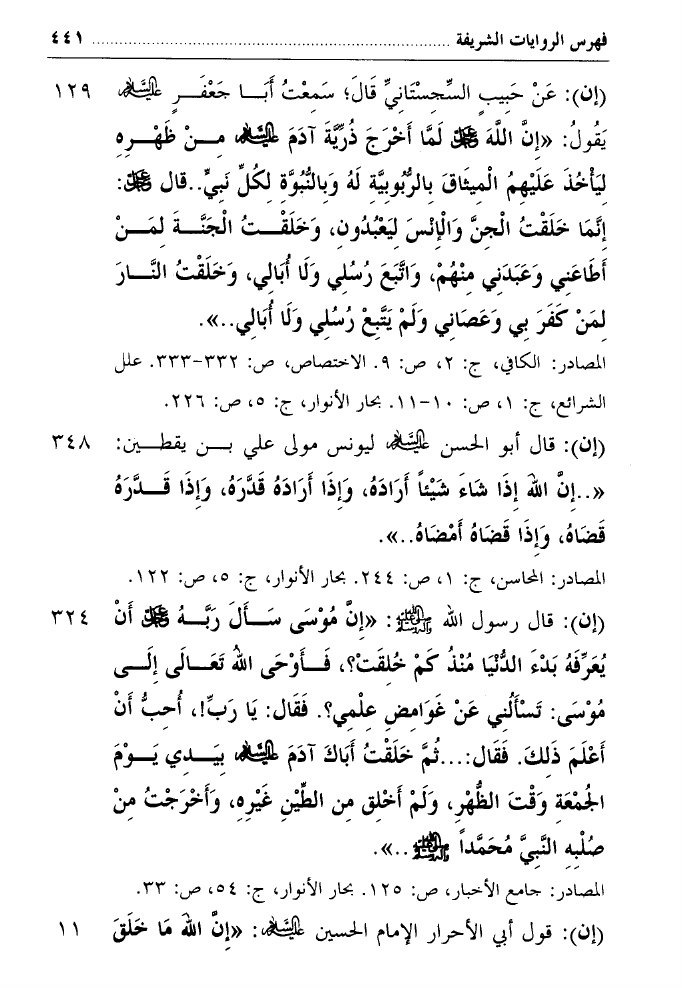 فهرس الروايات الشريفة ........................................ ٤٤١
(إن): عَنْ حَبِيبٍ السِّجِسْتَانِيِّ قَالَ؛ سَمِعْتُ أَبَا جَعْفَرٍ عليه السلام ١٢٩
يَقُولُ: «إِنَّ اللَّهَ عز وجل لَمَّا أَخْرَجَ ذُرِّيَّةَ آدَمَ عليه السلام مِنْ ظَهْرِهِ
لِيَأْخُذَ عَلَيْهِمُ الْمِيثَاقَ بِالرُّبُوبِيَّةِ لَهُ وَبِالنُّبُوَّةِ لِكُلِّ نَبِيٍّ..قال عز وجل:
إِنَّمَا خَلَقْتُ الْجِنَّ وَالْإِنْسَ لِيَعْبُدُونِ، وَخَلَقْتُ الْجَنَّةَ لِمَنْ
أَطَاعَنِي وَعَبَدَنِي مِنْهُمْ، وَاتَّبَعَ رُسُلِي وَلَا أُبَالِي، وَخَلَقْتُ النَّارَ
لِمَنْ كَفَرَ بِي وَعَصَانِي وَلَمْ يَتَّبِعْ رُسُلِي وَلَا أُبَالِي..».
المصادر: الكافي، ج: ٢، ص: ٩. الاختصاص، ص: ٣٣٢-٣٣٣. علل
الشرائع، ج: ١، ص: ١٠-١١. بحار الأنوار، ج: ٥، ص: ٢٢٦.
(إن): قال أبو الحسن عليه السلام ليونس مولى علي بن يقطين: ٣٤٨
«..إِنَّ اللهَ إِذَا شَاءَ شَيْئاً أَرَادَهُ، وَإِذَا أَرَادَهُ قَدَّرَهُ، وَإِذَا قَدَّرَهُ
قَضَاهُ، وَإِذَا قَضَاهُ أَمْضَاهُ..».
المصادر: المحاسن، ج: ١، ص: ٢٤٤. بحار الأنوار، ج: ٥، ص: ١٢٢.
(إن): قال رسول الله صلى الله عليه وآله: «إِنَّ مُوْسَى سَأَلَ رَبَّهُ عز وجل أَنْ ٣٢٤
يُعَرِّفَهُ بَدْءَ الدُّنْيَا مُنْذُ كَمْ خُلِقَتْ؟، فَأَوْحَى اللهُ تَعَالَى إِلَى
مُوْسَى: تَسْأَلُنِي عَنْ غَوَامِضِ عِلْمِي؟. فَقَالَ: يَا رَبِّ!، أُحِبُّ أَنْ
أَعْلَمَ ذَلِكَ. فَقَالَ:...ثُمَّ خَلَقْتُ أَبَاكَ آدَمَ عليه السلام بِيَدِي يَوْمَ
الجُمْعَةِ وَقْتَ الظُّهْرِ، وَلَمْ أَخْلِق مِن الطِّيْنِ غَيْرِهِ، وَأَخْرَجْتُ مِنْ
صُلْبِهِ النَّبِيَّ مُحَمَّداً صلى الله عليه وآله..».
المصادر: جامع الأخبار، ص: ١٢٥. بحار الأنوار، ج: ٥٤، ص: ٣٣.
(إن): قول أبي الأحرار الإمام الحسين عليه السلام: «إِنَّ اللهَ مَا خَلَقَ ١١